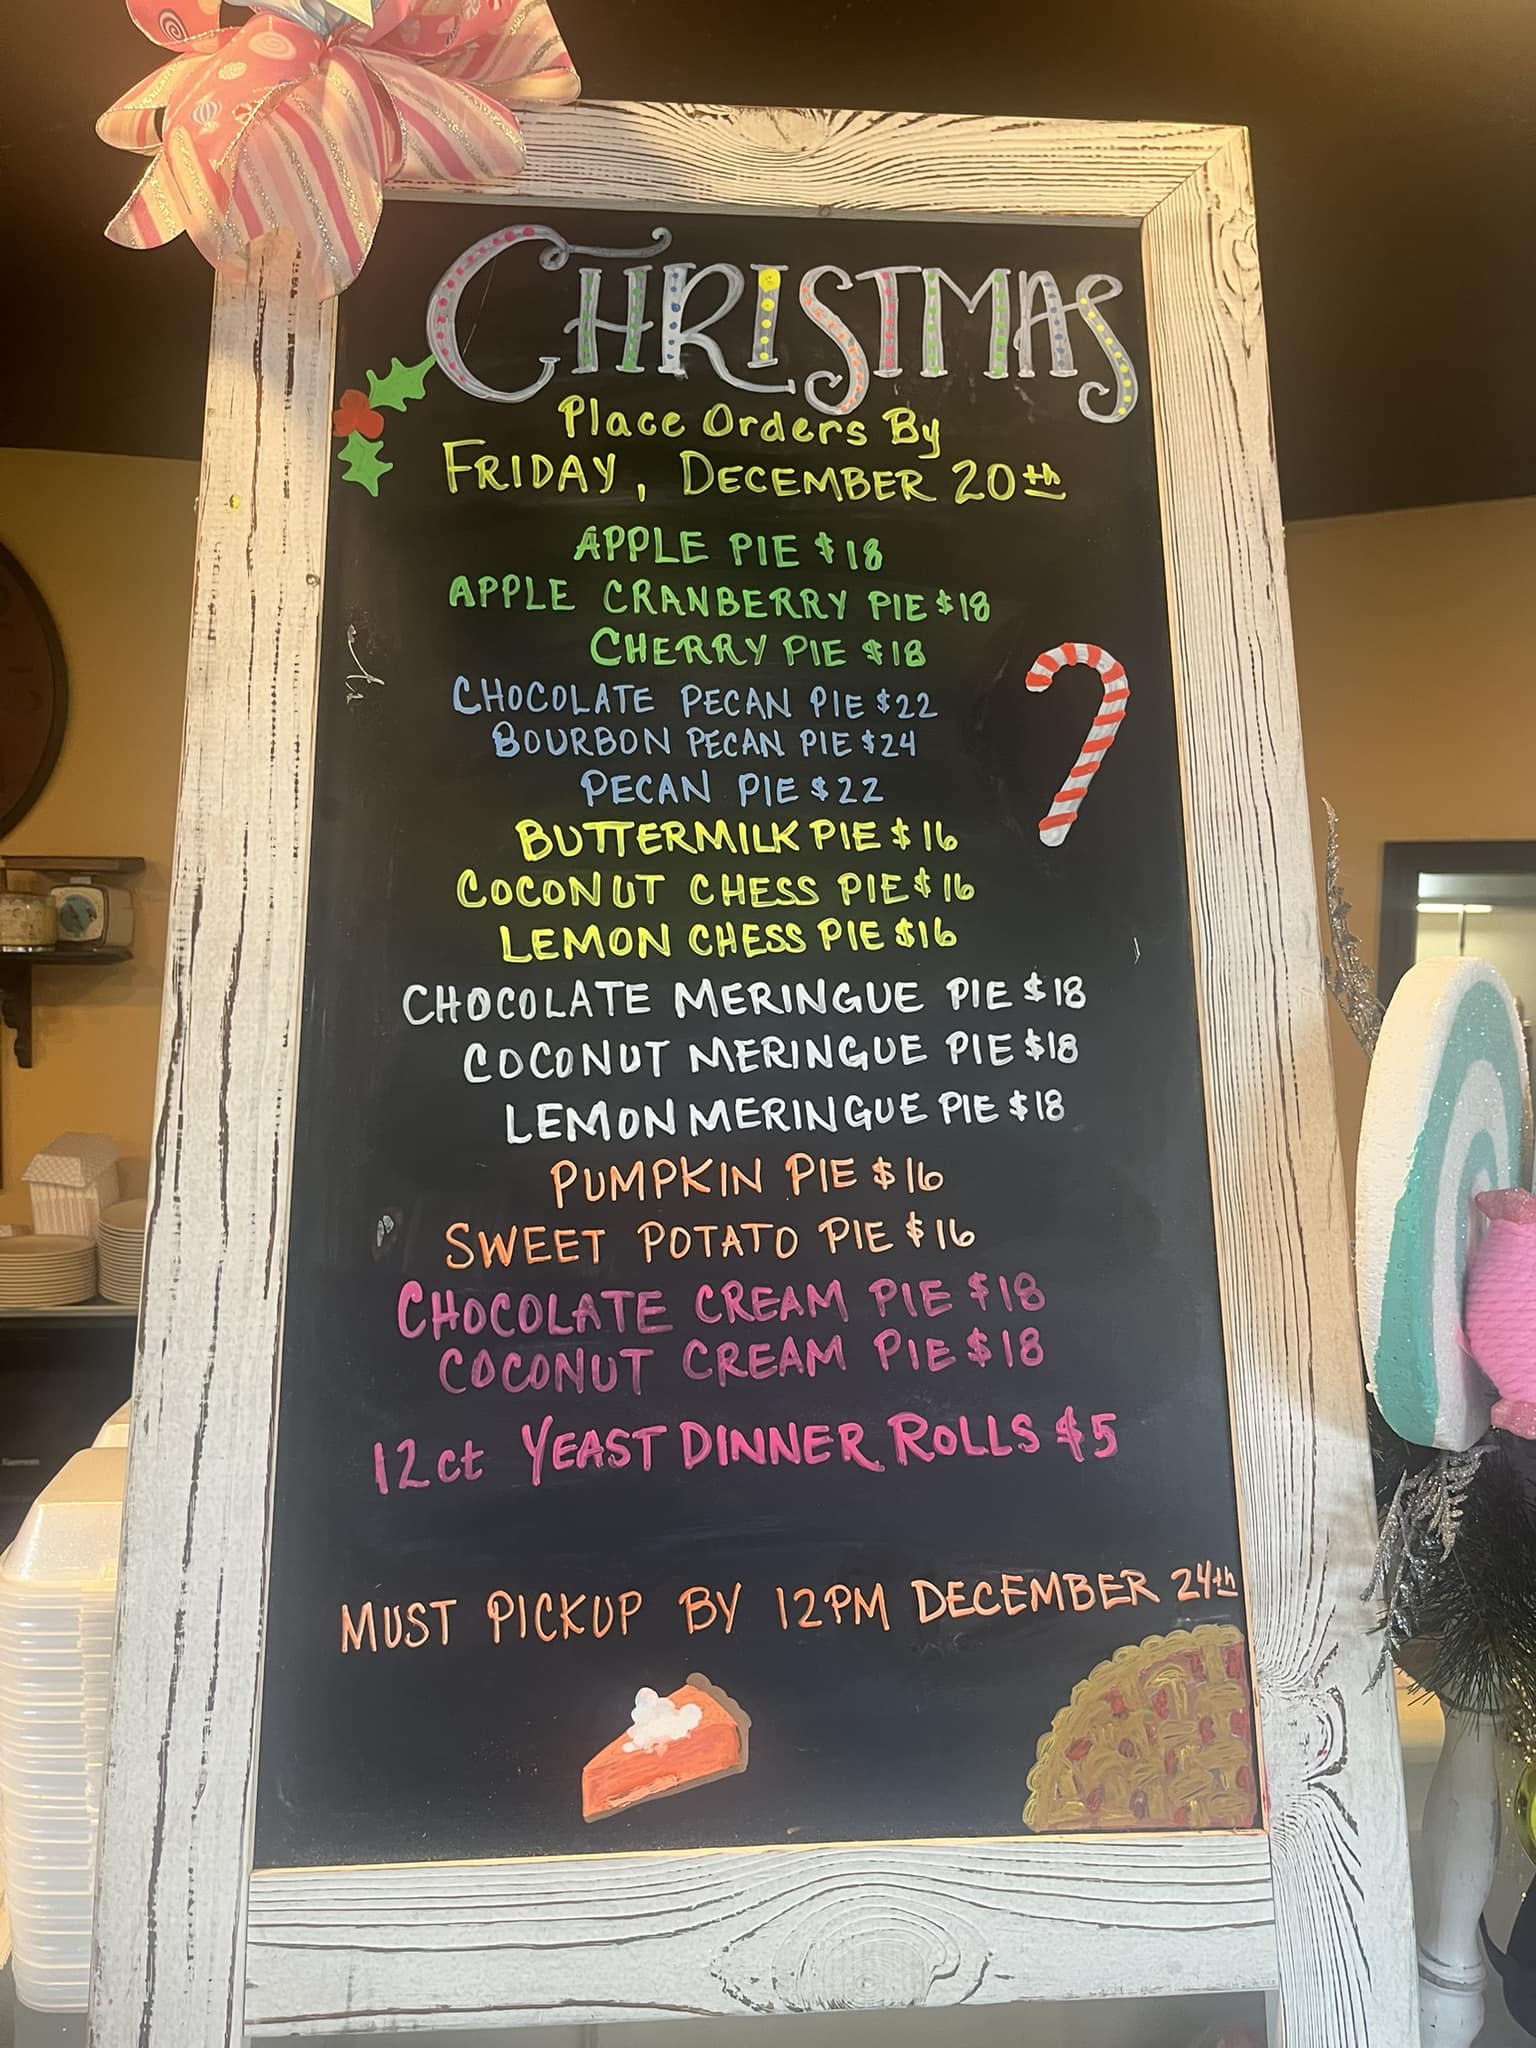 CHRISTMAS
Place Orders By
FRIDAY, DECEMBER 20th
APPLE PIE $18
APPLE CRANBERRY PIE $18
CHERRY PIE $18
CHOCOLATE PECAN PIE $22
BOURBON PECAN PIE $24
PECAN PIE $22
BUTTERMILK PIE $16
COCONUT CHESS PIE $16
LEMON CHESS PIE $16
CHOCOLATE MERINGUE PIE $18
COCONUT MERINGUE PIE $18
LEMON MERINGUE PIE $18
PUMPKIN PIE $16
SWEET POTATO PIE $16
CHOCOLATE CREAM PIE $18
COCONUT CREAM PIE $18
12ct YEAST DINNER ROLLS $5
MUST PICKUP BY 12PM DECEMBER 24th